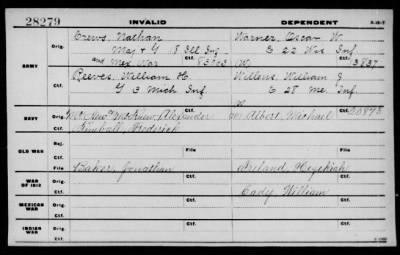 28279
INVALID
DEPENDENT
ARMY
Orig.
Crews, Nathan
Maj & G 18 Ill Inf
and Mex War
Ctf.
Warner, Oscar W.
E 22 Wis Inf
(W)
Orig.
Reeves, William H.
G 3 Mich Inf
Ctf.
William J
E 28 Me. Inf
NAVY
Orig.
Alexander
Kimball, Frederick
Ctf.
Albert, Michael
OLD WAR
Rej.
Ctf.
File
File
WAR OF 1812
Orig.
Baker, Jonathan
Ctf.
Ireland, Hezekiah
Cady, William
MEXICAN WAR
Orig.
Ctf.
Ctf.
INDIAN WAR
Orig.
Ctf.
Ctf.